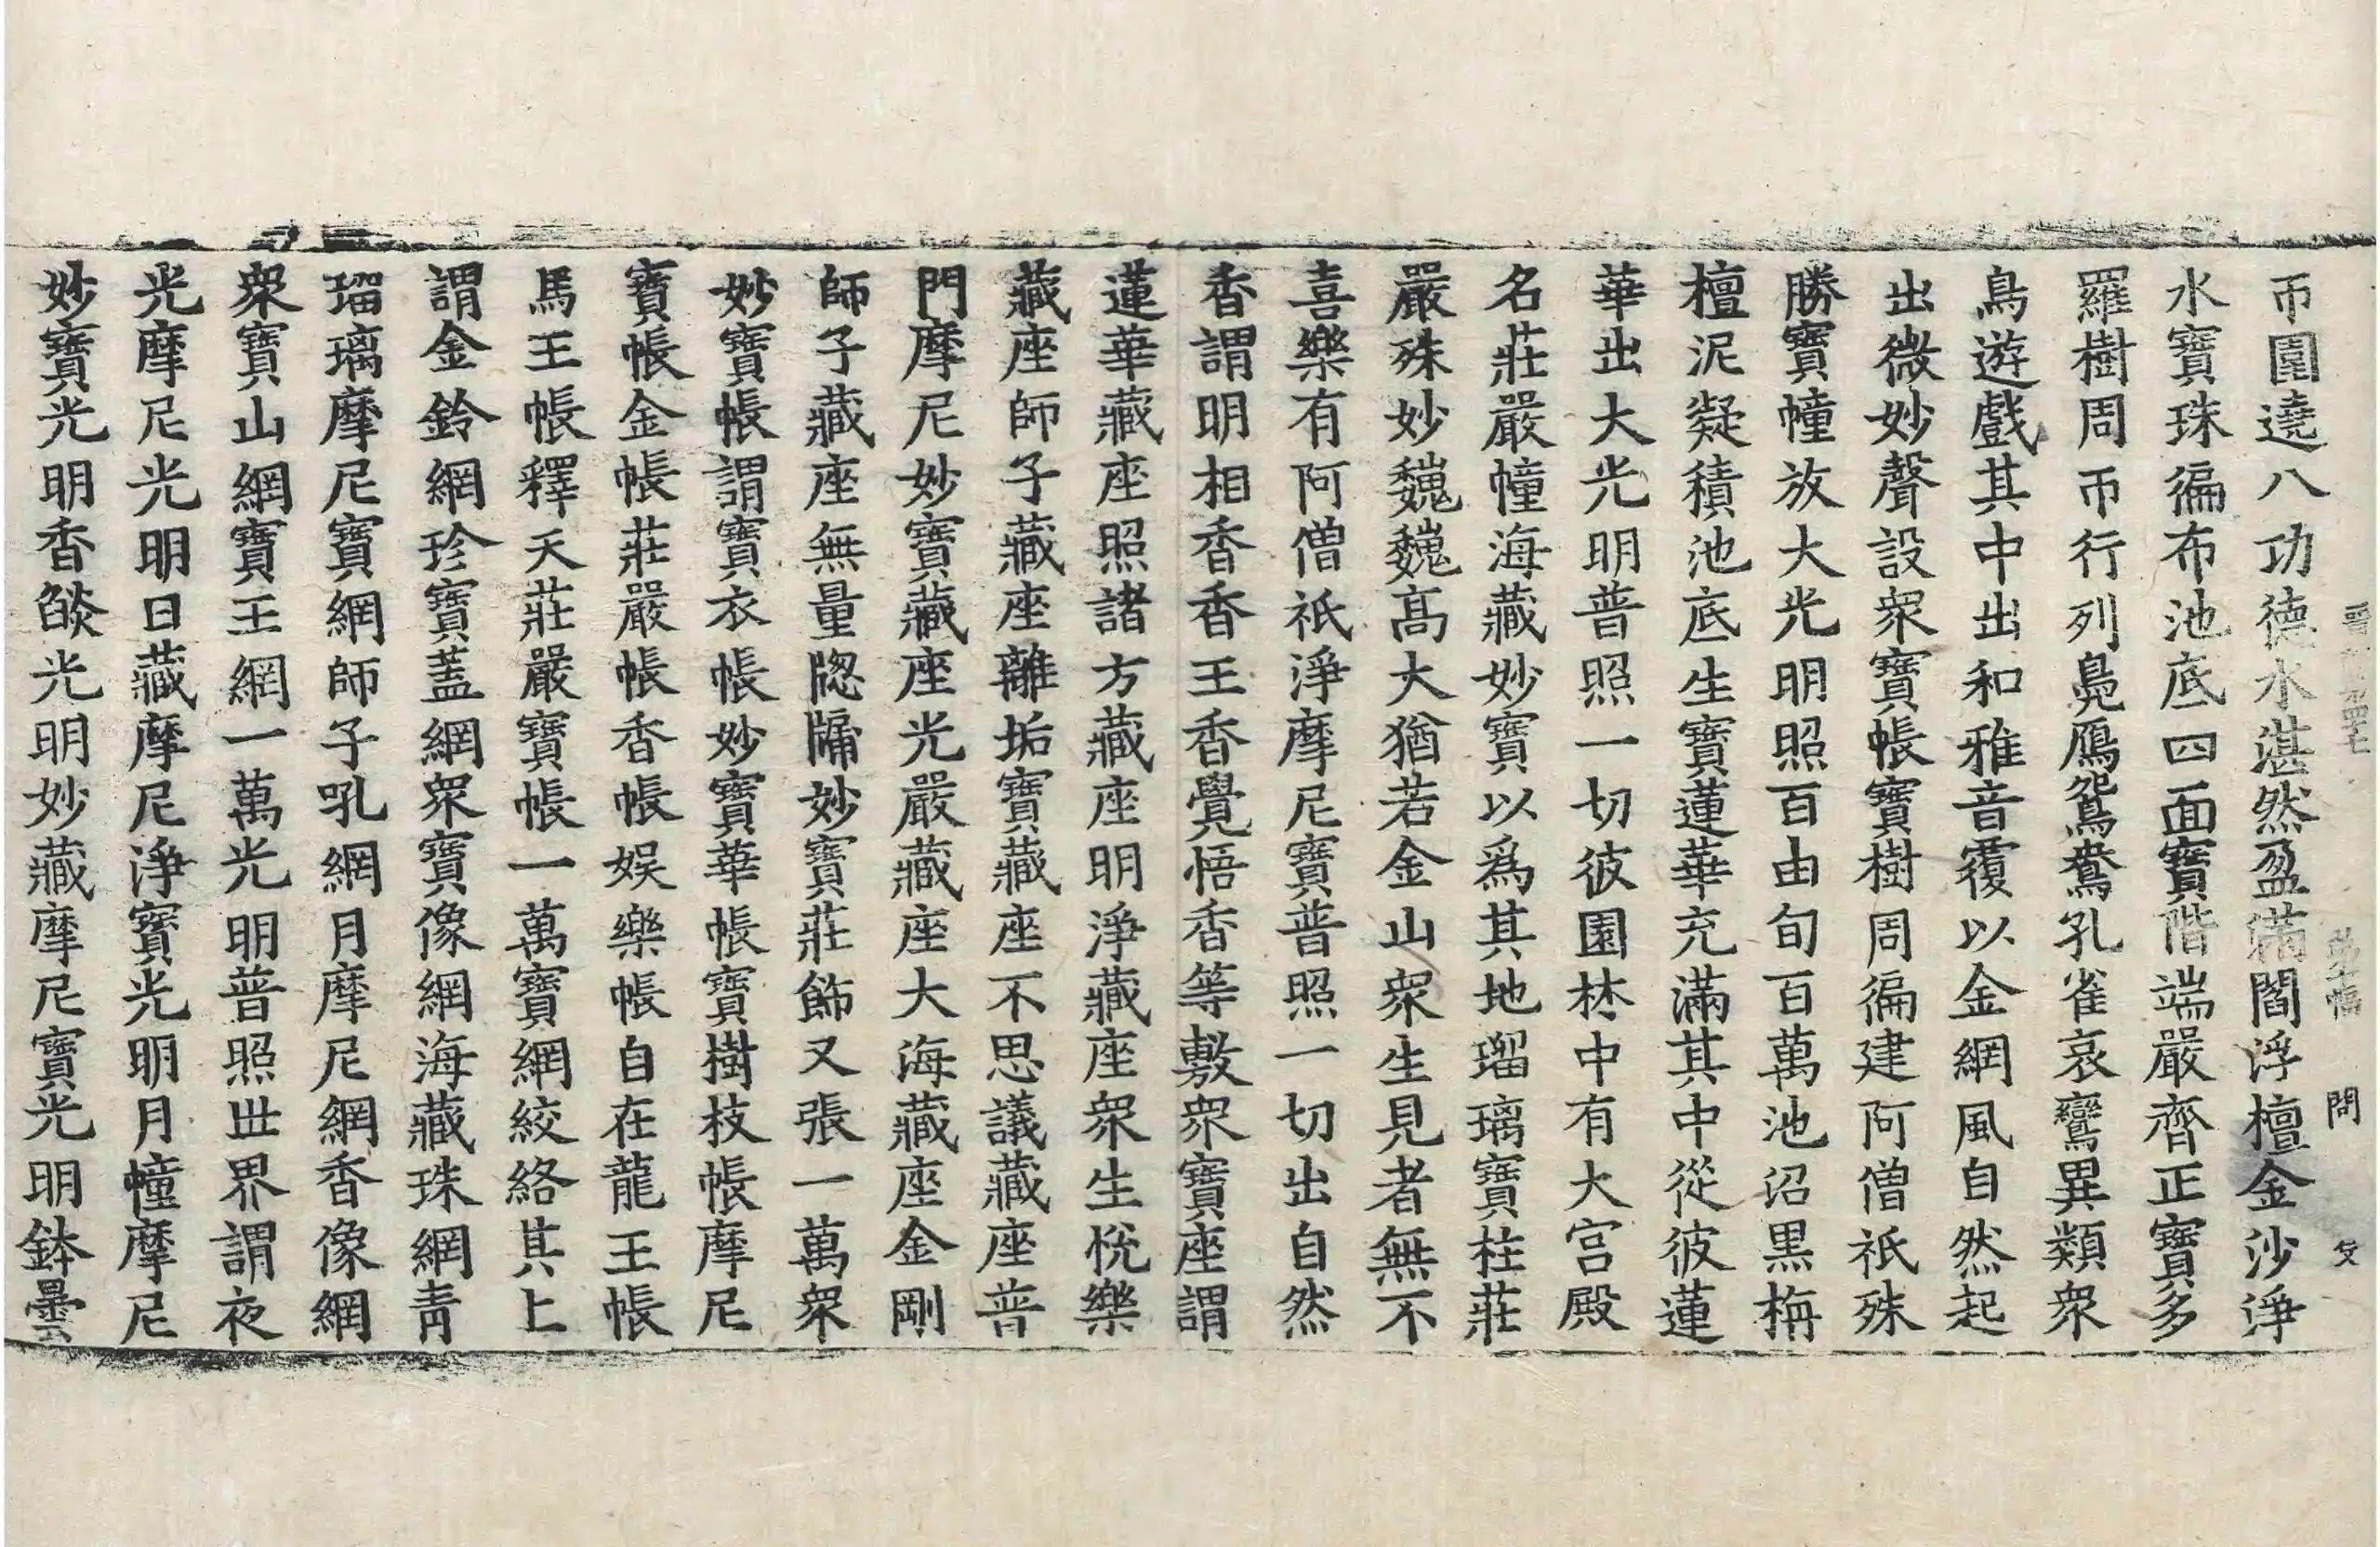 帀圍遶八功德水湛然盈滿閻浮檀金沙淨
水寶珠徧布池底四面寶階端嚴齊正寶多
羅樹周帀行列鳧鴈鴛鴦孔雀哀鸞異類衆
鳥遊戲其中出和雅音覆以金網風自然起
出微妙聲設衆寶帳寶樹周徧建阿僧祇殊
勝寶幢放大光明照百由旬百萬池沼黒栴
檀泥凝積池底生寶蓮華充滿其中從彼蓮
華出大光明普照一切彼園林中有大宫殿
名莊嚴幢海藏妙寶以爲其地瑠璃寶柱莊
嚴殊妙巍巍髙大猶若金山衆生見者無不
喜樂有阿僧祇淨摩尼寶普照一切出自然
香謂明相香香王香覺悟香等敷衆寶座謂
蓮華藏座照諸方藏座明淨藏座衆生悅樂
藏座師子藏座離垢寶藏座不思議藏座普
門摩尼妙寶藏座光嚴藏座大海藏座金剛
師子藏座無量牎牖妙寶莊飾又張一萬衆
妙寶帳謂寶衣帳妙寶華帳寶樹枝帳摩尼
寶帳金帳莊嚴帳香帳娱樂帳自在龍王帳
馬王帳釋天莊嚴寶帳一萬寶網絞絡其上
謂金鈴網珍寶蓋網衆寶像網海藏珠網青
瑠璃摩尼寶網師子吼網月摩尼網香像網
衆寶山網寶王網一萬光明普照世界謂夜
光摩尼光明日藏摩尼淨寶光明月幢摩尼
妙寶光明香燄光明妙藏摩尼寶光明鉢曇